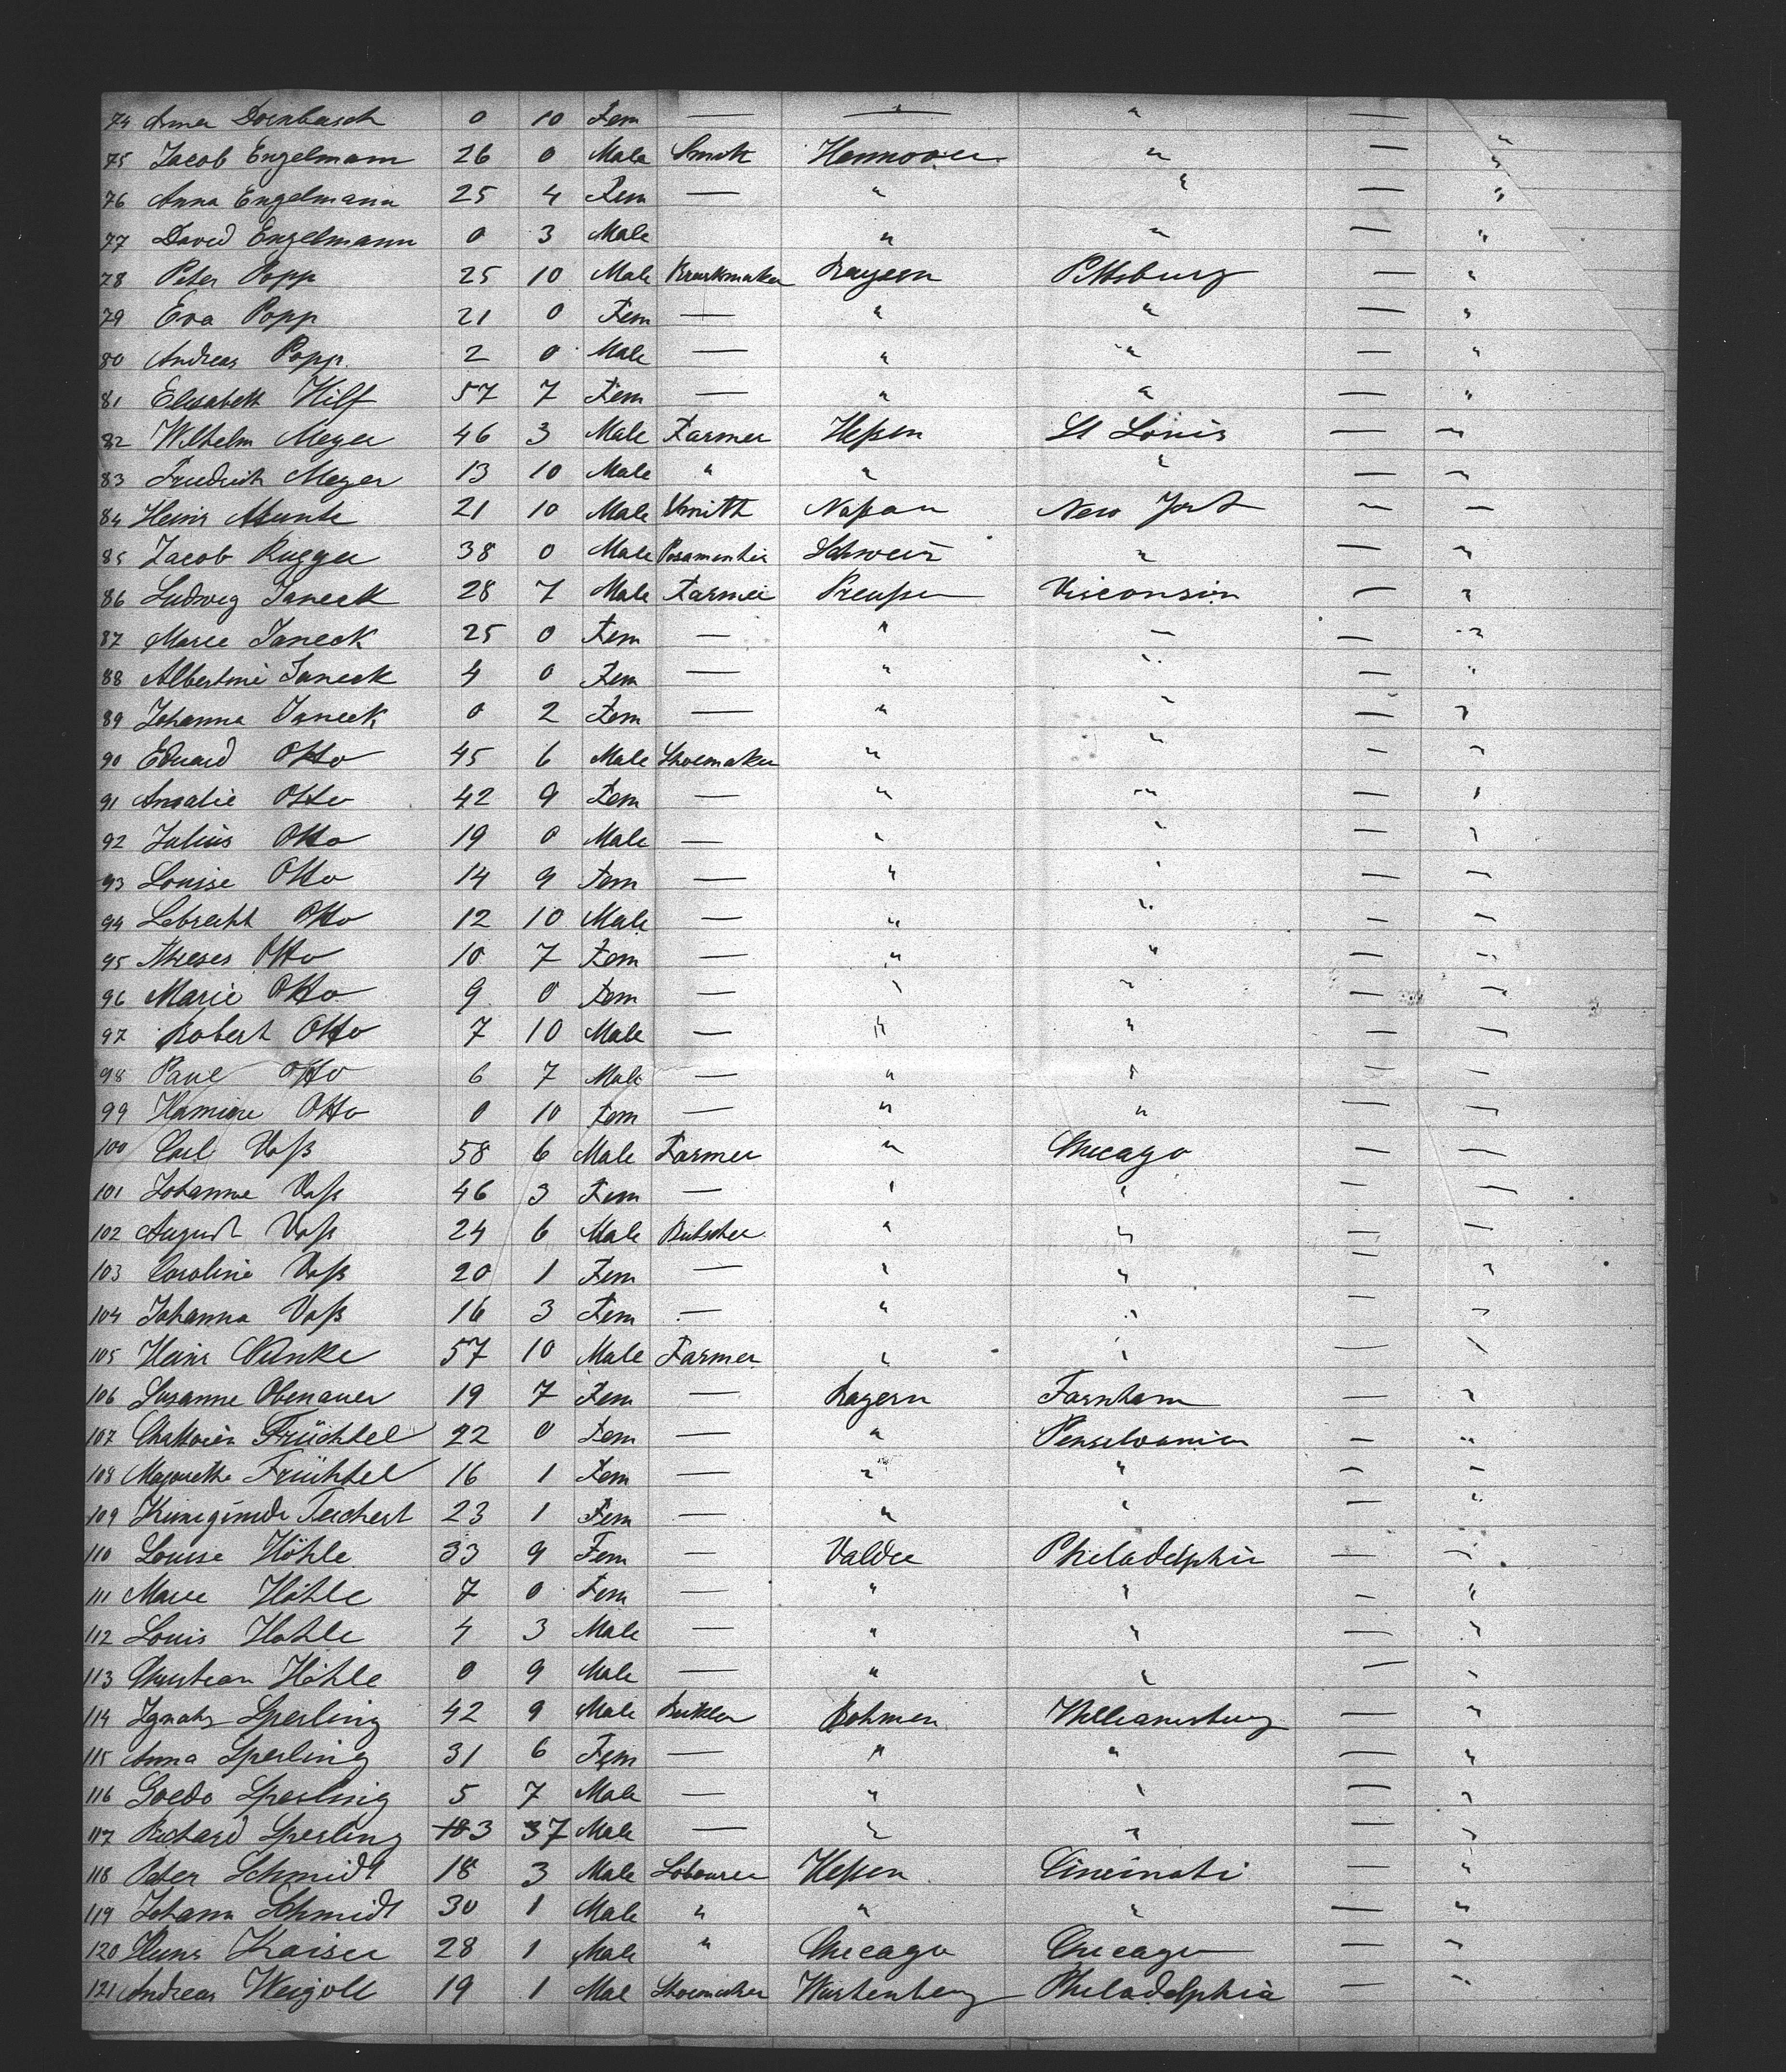 74 Anna Dornbusch 0 10 Fem — " " —
75 Jacob Engelmann 26 0 Male Smith Hannover " — "
76 Anna Engelmann 25 4 Fem — " " — "
77 David Engelmann 0 3 Male " " — "
78 Peter Popp 25 10 Male Bayern Pittsburg — "
79 Eva Popp 21 0 Fem — " " — "
80 Andreas Popp 2 0 Male — " " — "
81 Elisabeth Hilf 57 7 Fem — " " — "
82 Wilhelm Meyer 46 3 Male Farmer Heßen St Louis — "
83 Friedrich Meyer 13 10 Male " " " — "
84 Heinr Munk 21 10 Male Smith Naßau New York — —
85 Jacob Rugger 38 0 Male Posamentier Schweiz " — "
86 Ludwig Janeck 28 7 Male Farmer Preußen Visconsin — "
87 Marie Janeck 25 0 Fem — " — — "
88 Albertine Janeck 4 0 Fem — " " — "
89 Johanna Janeck 0 2 Fem — " " — "
90 Eduard Otto 45 6 Male Shoemaker " " — "
91 Amalie Otto 42 9 Fem — " " — "
92 Julius Otto 19 0 Male — " " — "
93 Louise Otto 14 9 Fem — " " — "
94 Lebrecht Otto 12 10 Male — " " — "
95 Otto 10 7 Fem — " " — "
96 Marie Otto 9 0 Fem — " " — "
97 Robert Otto 7 10 Male — " " — —
98 Paul Otto 6 7 Male — " " — —
99 Otto 0 10 Fem — " " — —
100 Carl Voß 58 6 Male Farmer " Chicago — —
101 Johanne Voß 46 3 Fem — " " — —
102 August Voß 24 6 Male Butscher " " — —
103 Caroline Voß 20 1 Fem — " " — "
104 Johanna Voß 16 3 Fem — " " — "
105 Heinr 57 10 Male Farmer " " — "
106 Susanne Obenauer 19 7 Fem — Bayern Farnham — "
107 Früchtel 22 0 Fem — " Pensilvanien — "
108 Magarethe Früchtel 16 1 Fem — " " — "
109 Kunigunde Teichert 23 1 Fem — " " — "
110 Louise Höhle 33 9 Fem — Valdee Philadelphia — "
111 Marie Höhle 7 0 Fem — " " — "
112 Louis Hohle 4 3 Male — " " — "
113 Christian Höhle 0 9 Male — " " — "
114 Ignatz Sperling 42 9 Male Bohmen Williamsburg — "
115 Anna Sperling 31 6 Fem — " " — "
116 Sperling 5 7 Male — " " — "
117 Richard Sperling 3 7 Male — " " — "
118 Peter Schmidt 18 3 Male Labourer Heßen Cincinati — "
119 Johann Schmidt 30 1 Male " " " — "
120 Heinr Kaiser 28 1 Male " Chicago Chicago — "
121 Andreas Weigoll 19 1 Mal Shoemaker Wurtenberg Philadelphia — "